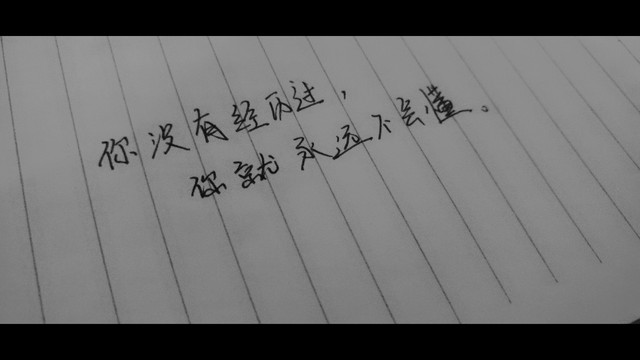 你没有经历过，
你就永远不会懂。